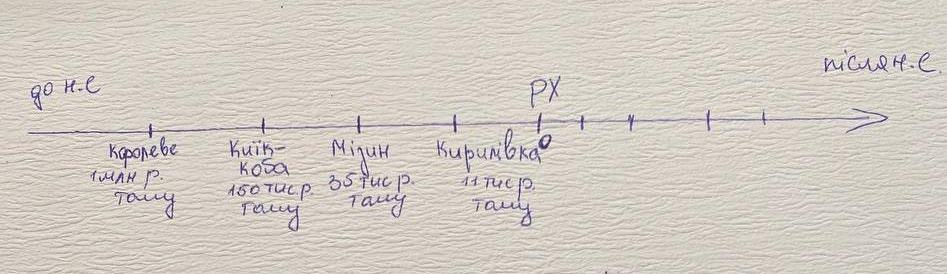 до н.е
після н.е.
РХ
Королеве
1 млн р.
тому
Киїк-
коба
150 тис р.
тому
Мізин
35 тис р.
тому
Кирилівка
11 тис р.
тому
0